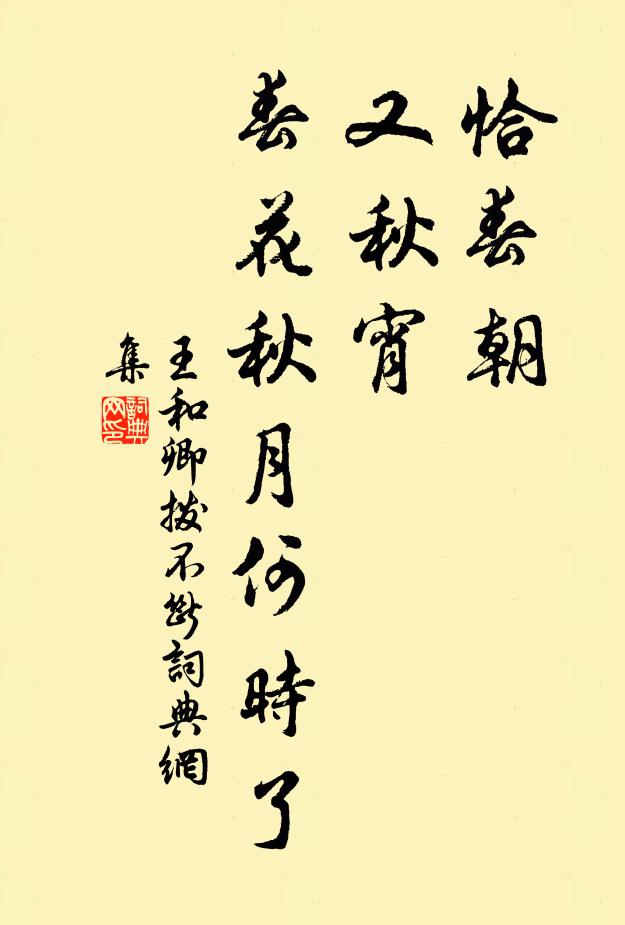 恰春朝
又秋宵
春花秋月何時了
王和卿撥不斷詞典網
集
詞典網印